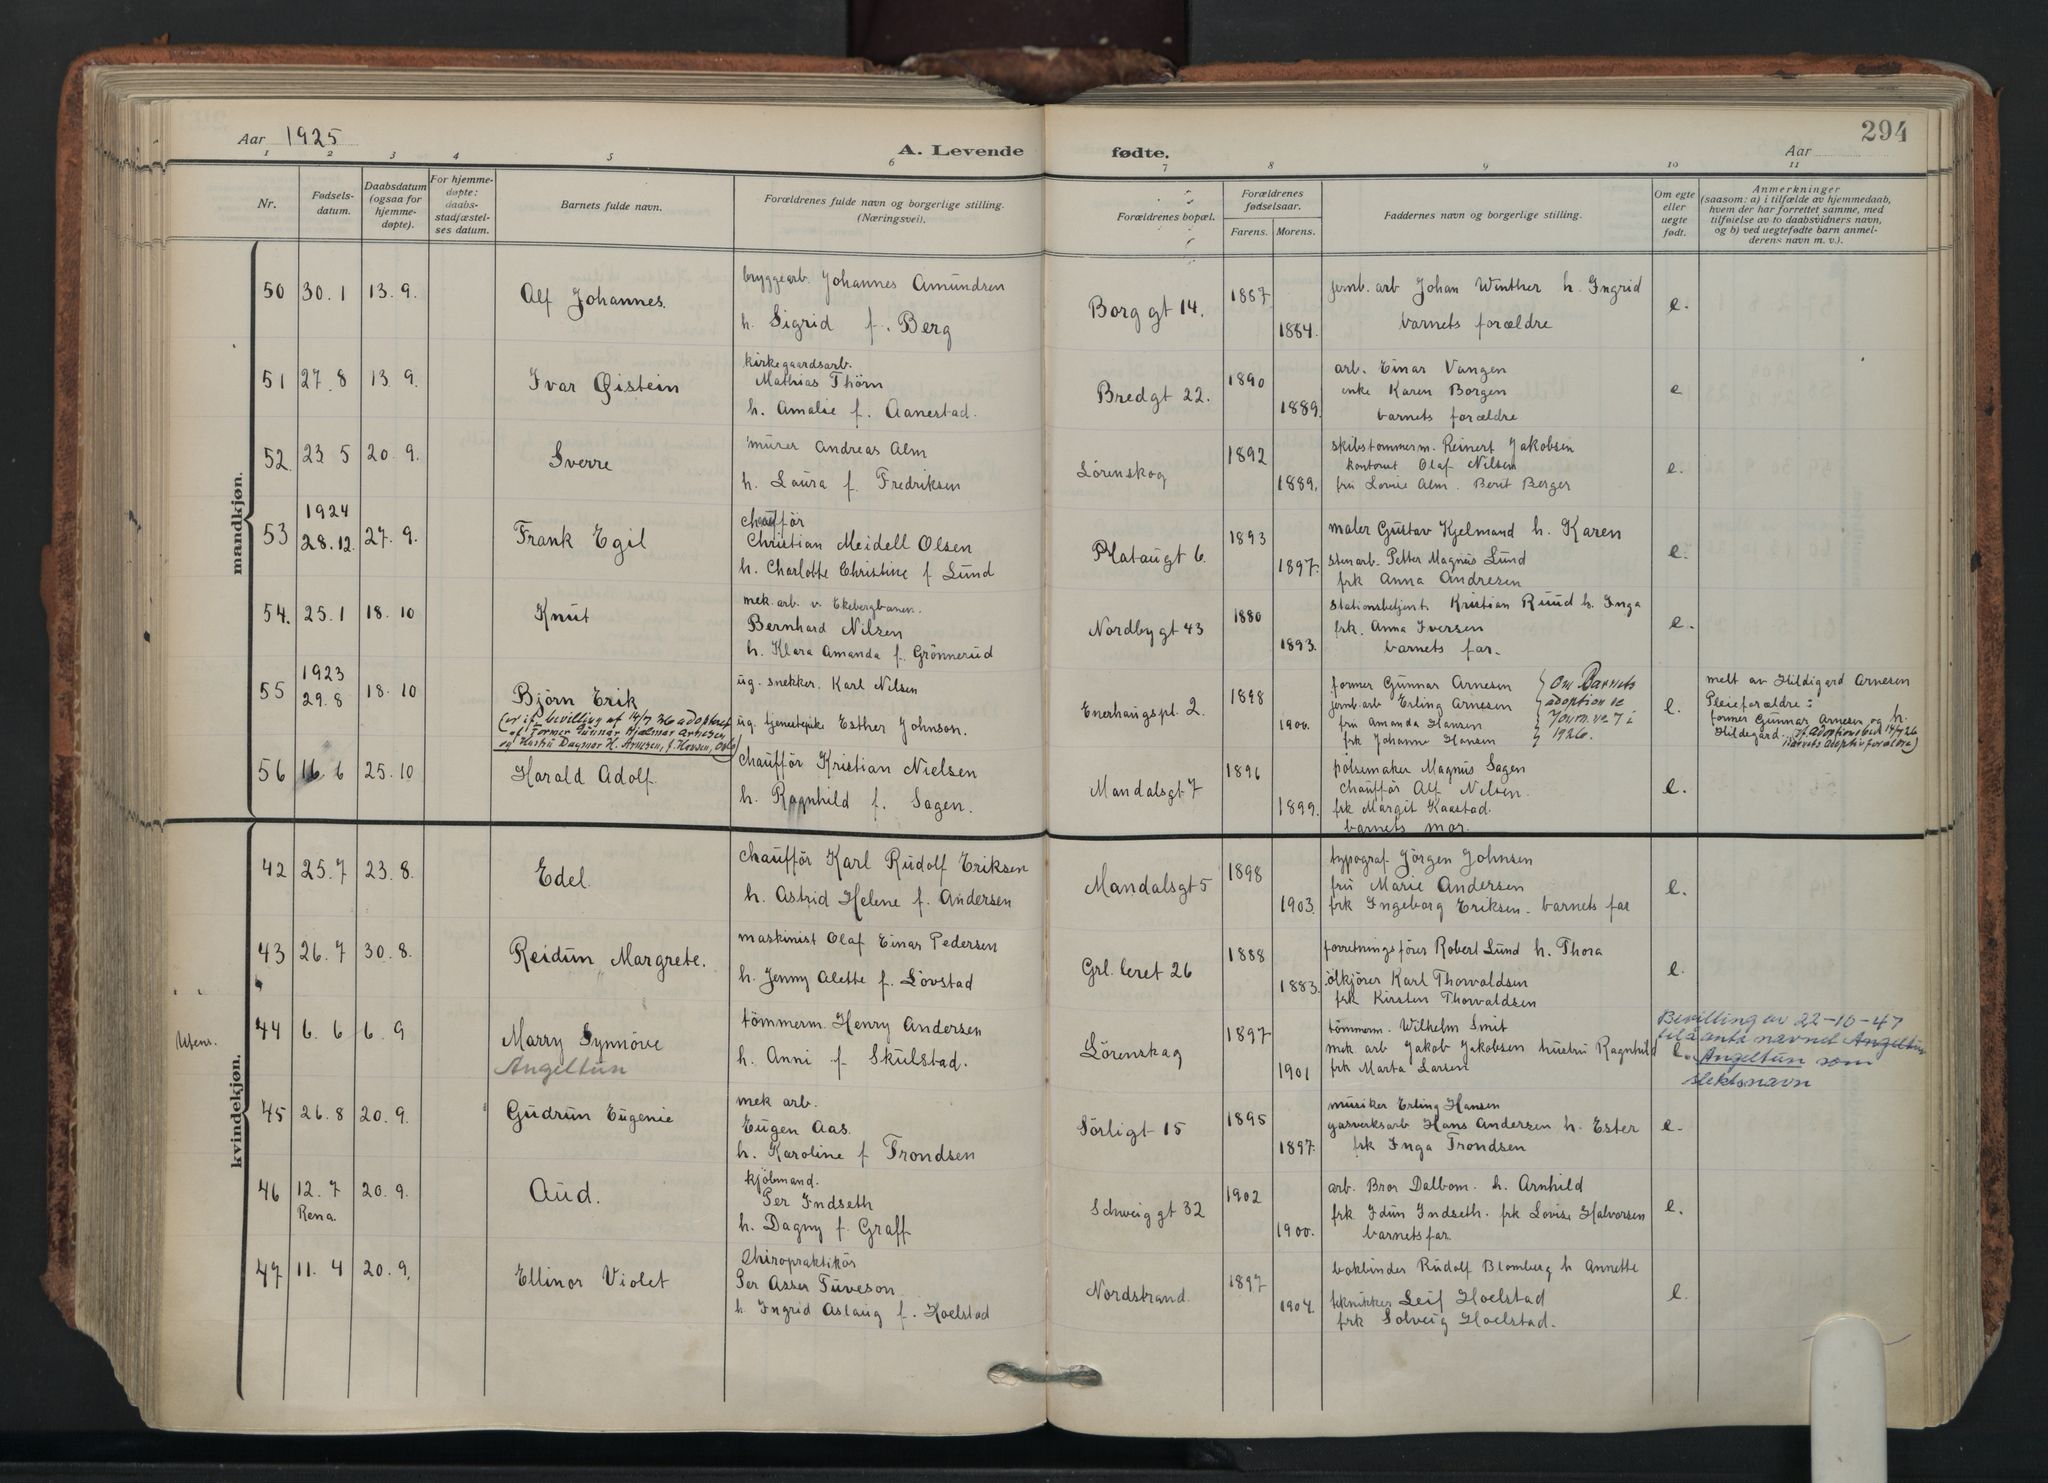 294
Aar 1925
A. Levende fødte.
Aar
1 2 3 4 5 6 7 8 9 10 11
Nr.
Fødsels-
datum.
Daabsdatum
(ogsaa for
hjemme-
døpte).
For hjemme-
døpte:
daabs-
stadfæstel-
ses datum.
Barnets fulde navn.
Forældrenes fulde navn og borgerlige stilling.
(Næringsvei).
Forældrenes bopæl.
Forældrenes
fødselsaar.
Farens. Morens.
Faddernes navn og borgerlige stilling.
Om egte
eller
uegte
født.
Anmerkninger
(saasom: a) i tilfælde av hjemmedaab,
hvem der har forrettet samme, med
tilføielse av to daabsvidners navn,
og b) ved uegtefødte barn anmel-
derens navn m. v.).
mandkjøn.
50 30. 1 13. 9. Alf Johannes.
bryggearb. Johannes Amundsen
h. Sigrid f. Berg
Borg gt 14. 1887 1884.
jernb. arb Johan Winther h. Ingrid
barnets forældre
e.
51 27. 8 13 9. Ivar Øistein
kirkegaardsarb.
Mathias Thörn
h. Amalie f. Aanestad.
Bredgt 22. 1890 1889.
arb. Einar Vangen
enke Karen Borgen
barnets forældre
e
52. 23 5 20. 9. Sverre
murer Andreas Alm
h. Laura f. Fredriksen
Lörenskog 1892 1889.
skibstømmerm. Reinert Jakobsen
kontorist Olaf Nilsen
fru Lovise Alm. Berit Berger
e.
53 1924
28. 12. 27. 9. Frank Egil
chaufför
Christian Meidell Olsen
h. Charlotte Christine f Lund
Plataugt 6. 1893 1897.
maler Gustav Kjelmand h. Karen
stenarb. Petter Magnus Lund
frk Anna Andresen
e.
54. 25. 1 18. 10 Knut
mek. arb. v. Ekebergbanen.
Bernhard Nilsen
h. Klara Amanda f. Grönnerud
Nordbygt 43 1880 1893.
stationsbetjent. Kristian Ruud h. Inga
frk. Anna Iversen
barnets far.
e.
55 1923
29. 8 18. 10 Björn Erik
(er ifl. bevilling af 14/7 26 adopteret
af Former Gunnar Hjalmar Arnesen
og Hustru Dagmar H. Arnesen, f. Hovsen, Oslo)
ug. snekker. Karl Nilsen
ug. tjenestepike Esther Johnson.
Enerhaugspl. 2. 1898 1900.
former Gunnar Arnesen
jernb. arb Erling Arnesen
fru Amanda Hansen
frk Johanne Hansen
Om Barnets
adoption se
Journ. nr 7 i
1926.
e.
melt av Hildigard Arnesen
Pleieforældre:
former Gunnar Arnesen og h.
Hildegard.
56 16 6 25. 10 Harald Adolf.
chaufför Kristian Nielsen
h. Ragnhild f. Sagen.
Mandalsgt 7 1896 1899.
pölsemaker Magnus Sagen
chaufför Alf Nilsen.
frk Margit Kaastad.
barnets mor.
e.
kvindekjøn.
42 25. 7 23. 8. Edel.
chaufför Karl Rudolf Eriksen
h. Astrid Helene f. Andersen
Mandalsgt 5 1898 1903.
typograf Jörgen Johnsen
fru Marie Andersen
frk Ingeborg Eriksen. barnets far
e.
43 26. 7 30. 8. Reidun Margrete.
maskinist Olaf Einar Pedersen
h. Jenny Alette f. Lövstad
Grl. leret 26 1888 1883.
forretningsförer Robert Lund h. Thora
ölkjörer Karl Thorvaldsen
frk Kirsten Thorvaldsen
e.
Utens.
44 6. 6 6. 9 Marry Synnöve
Angeltun
tömmerm. Henry Andersen
h. Anni f. Skulstad.
Lörenskog 1897 1901
tömmerm. Wilhelm Smit
mek. arb Jakob Jakobsen hustru Ragnhild
frk Marta Larsen
e.
Bevilling av 22-10-47
til å anta navnet Angeltun
Angeltun som
slektsnavn
45 26. 8 20. 9. Gudrun Eugenie
mek arb.
Eugen Aas.
h. Karoline f Trondsen
Sörligt 15 1895 1897.
musiker Erling Hansen
gasverksarb Hans Andersen h. Ester
frk Inga Trondsen
e.
46 12. 7
Rena. 20. 9. Aud.
kjöbmand.
Per Indseth
h. Dagny f. Graff
Schweiggt 32 1902 1900.
arb. Bror Dalbom. h. Arnhild
frk Idun Indseth. frk Lovise Halvorsen
barnets far.
e.
47 11. 4 20. 9. Ellinor Violet
Chiropraktikör
Per Asser Tuveson
h. Ingrid Aslaug f. Hoelstad
Nordstrand. 1897 1904.
bokbinder Rudolf Blomberg h Annette
tekniker Leif Hoelstad
frk Solveig Hoelstad.
e.